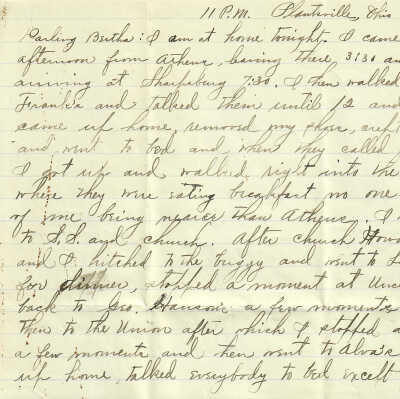 11 P.M. Plantsville, Ohio
Darling Bertha: I am at home tonight. I came
afternoon from Athens, leaving there, 3:30 an
arriving at Sharpsburg 7:30. I then walked
Frank's and talked them until 12 and
came up home, removed my shoes, crept
and went to bed and, when they called
I got up and walked right into the
where they were eating breakfast no one
of me being nearer than Athens. I
to S.S. and church. After church Howa
and I hitched to the buggy and went to L
for dinner, stopped a moment at Unc
back to Geo. Hanson's a few moments
then to the Union after which I stopped a
a few moments and then went to Alva's
up home, talked everybody to bed except